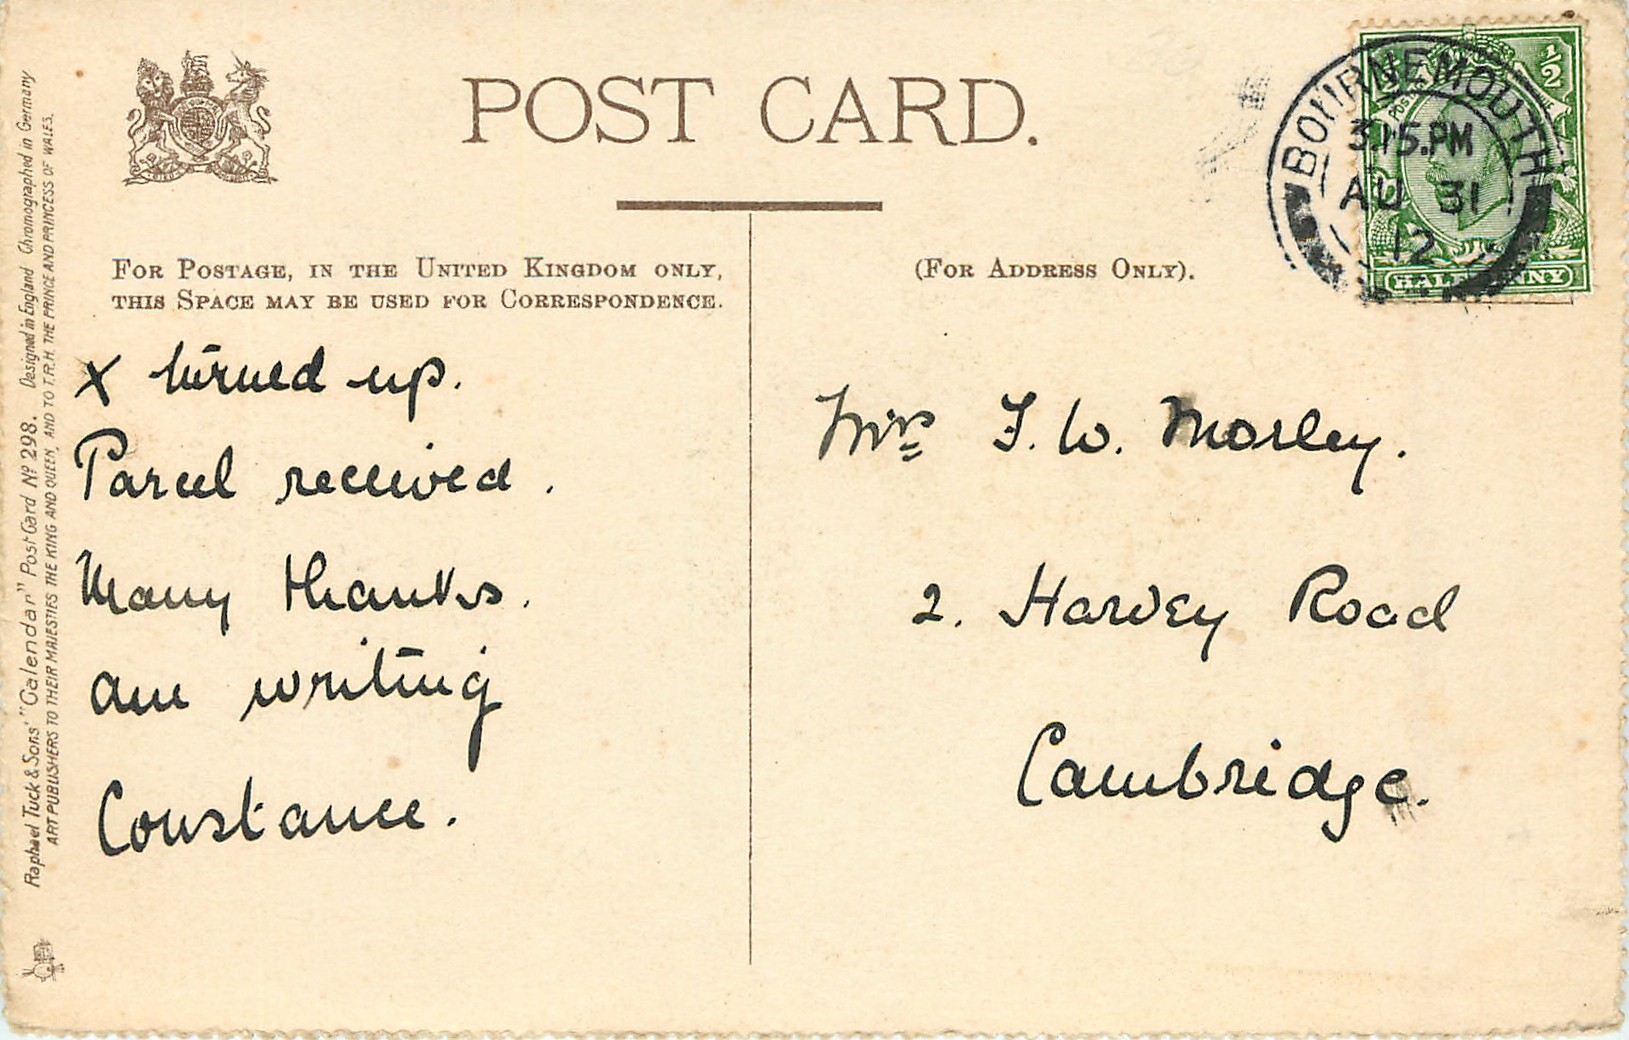 POST CARD.
FOR POSTAGE, IN THE UNITED KINGDOM ONLY,
THIS SPACE MAY BE USED FOR CORRESPONDENCE.
(FOR ADDRESS ONLY).
BOURNEMOUTH
3.15.PM
AU 31
12
½
HALFPENNY
X turned up.
Parcel received.
Many thanks.
am writing
Constance.
Mrs F. W. Morley.
2. Harvey Road
Cambridge.
Raphael Tuck & Sons' "Calendar" Post Card Nº 298. Designed in England Chromographed in Germany
ART PUBLISHERS TO THEIR MAJESTIES THE KING AND QUEEN, AND TO T.R.H. THE PRINCE AND PRINCESS OF WALES.